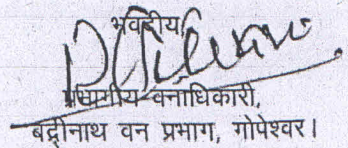 भवदीय,
प्रभागीय वनाधिकारी,
बद्रीनाथ वन प्रभाग, गोपेश्वर।